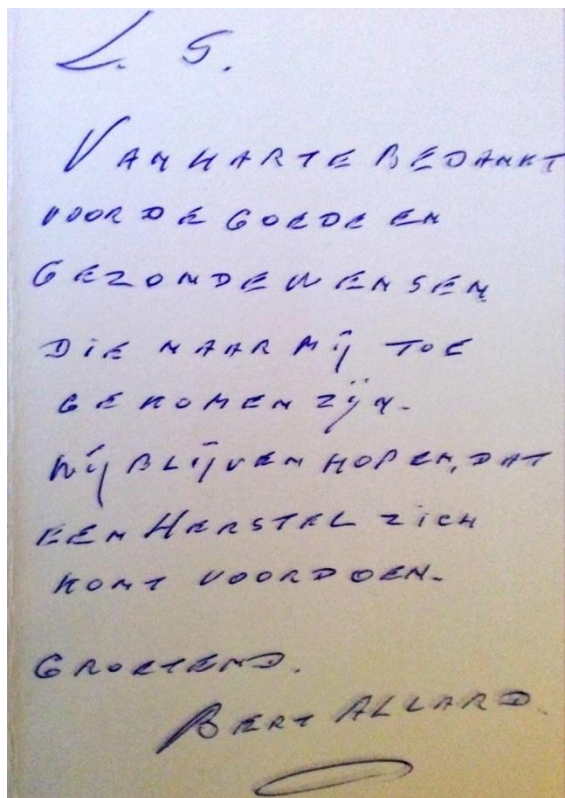 L. S.
VAN HARTE BEDANKT
VOOR DE GOEDE EN
GEZONDE WENSEN
DIE NAAR MIJ TOE
GEKOMEN ZIJN.
WIJ BLIJVEN HOPEN, DAT
EEN HERSTEL ZICH
KOMT VOORDOEN.
GROETEND.
BERT ALLARD.